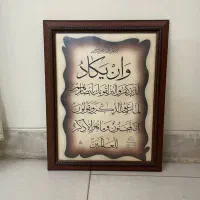 وَإِنْ يَكَادُ
الَّذِينَ كَفَرُوا لَيُزْلِقُونَكَ بِأَبْصَارِهِمْ
لَمَّا سَمِعُوا الذِّكْرَ وَيَقُولُونَ
إِنَّهُ لَمَجْنُونٌ وَمَا هُوَ إِلَّا ذِكْرٌ
لِلْعَالَمِينَ